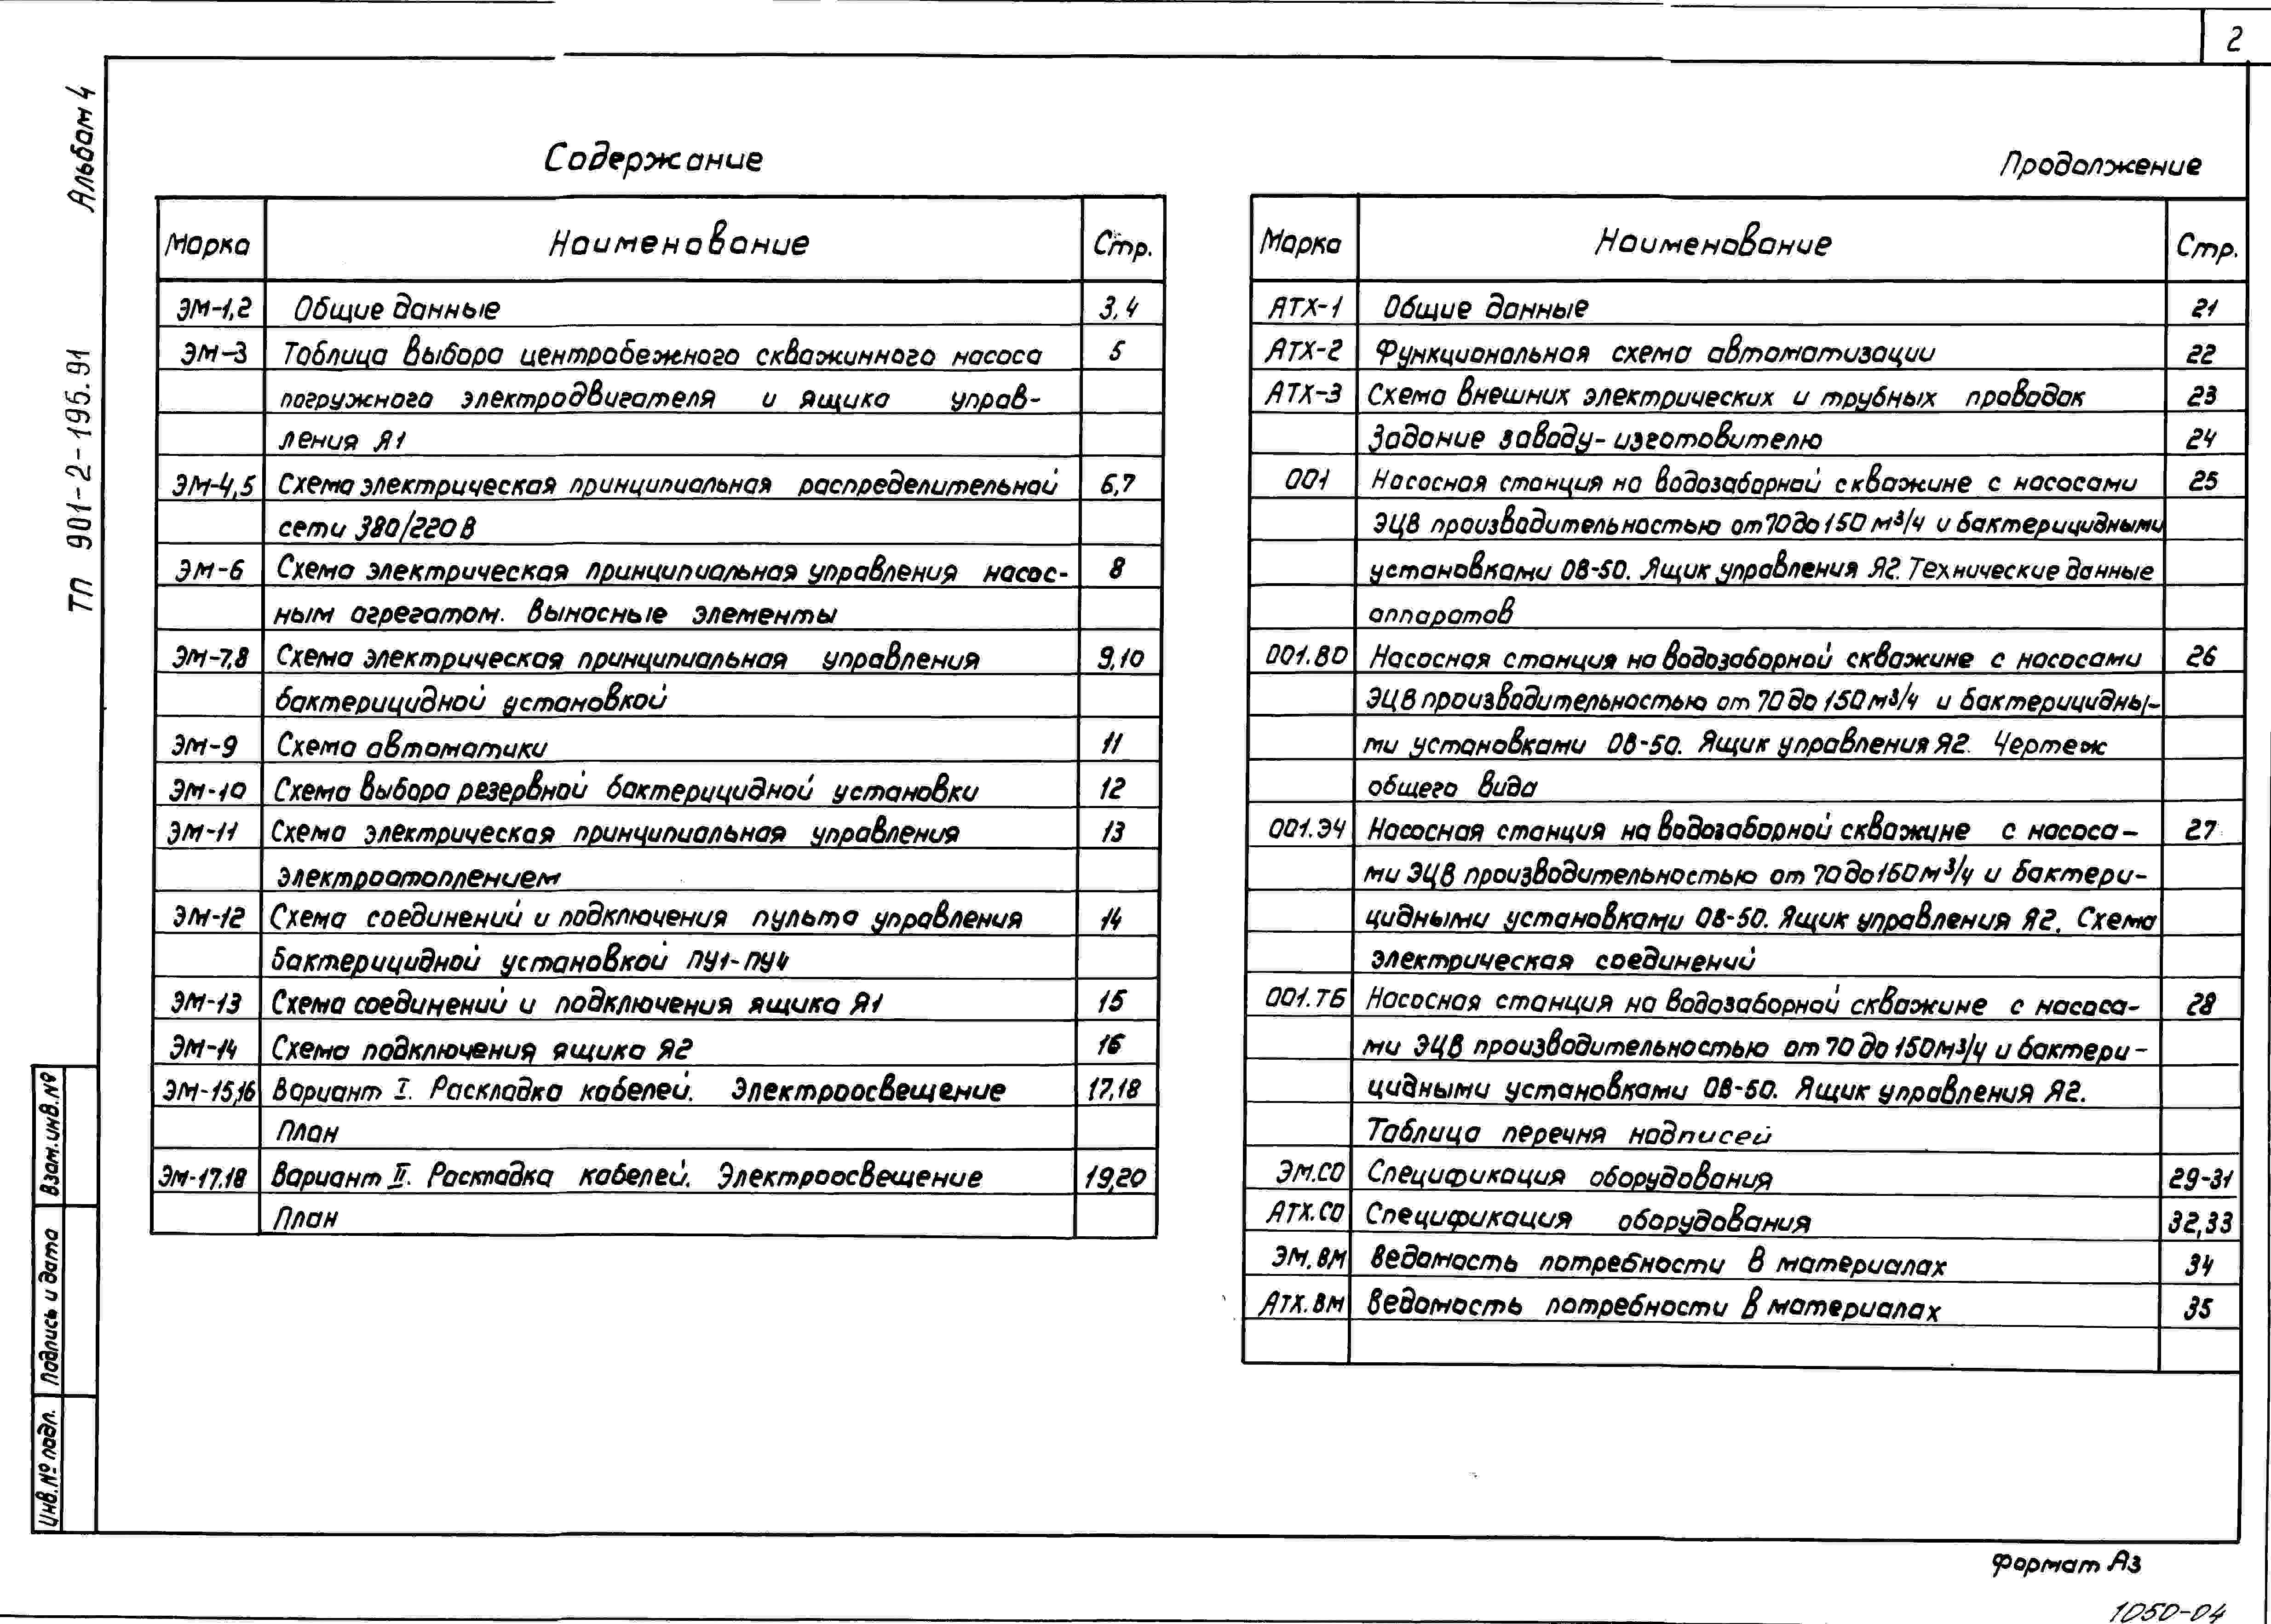 2
Альбом 4
ТП 901-2-195.91
Содержание
Марка Наименование Стр.
ЭМ-1,2 Общие данные 3,4
ЭМ-3 Таблица выбора центробежного скважинного насоса 5
погружного электродвигателя и ящика управ-
ления Я1
ЭМ-4,5 Схема электрическая принципиальная распределительной 6,7
сети 380/220В
ЭМ-6 Схема электрическая принципиальная управления насос- 8
ным агрегатом. Выносные элементы
ЭМ-7,8 Схема электрическая принципиальная управления 9,10
бактерицидной установкой
ЭМ-9 Схема автоматики 11
ЭМ-10 Схема выбора резервной бактерицидной установки 12
ЭМ-11 Схема электрическая принципиальная управления 13
электроотоплением
ЭМ-12 Схема соединений и подключения пульта управления 14
бактерицидной установкой ПУ1-ПУ4
ЭМ-13 Схема соединений и подключения ящика Я1 15
ЭМ-14 Схема подключения ящика Я2 16
ЭМ-15,16 Вариант I. Раскладка кабелей. Электроосвещение 17,18
План
ЭМ-17,18 Вариант II. Раскладка кабелей. Электроосвещение 19,20
План
Продолжение
Марка Наименование Стр.
АТХ-1 Общие данные 21
АТХ-2 Функциональная схема автоматизации 22
АТХ-3 Схема внешних электрических и трубных проводок 23
Задание заводу-изготовителю 24
001 Насосная станция на водозаборной скважине с насосами 25
ЭЦВ производительностью от 70 до 150 м³/ч и бактерицидными
установками ОВ-50. Ящик управления Я2. Технические данные
аппаратов
001.ВО Насосная станция на водозаборной скважине с насосами 26
ЭЦВ производительностью от 70 до 150 м³/ч и бактерицидны-
ми установками ОВ-50. Ящик управления Я2. Чертеж
общего вида
001.Э4 Насосная станция на водозаборной скважине с насоса- 27
ми ЭЦВ производительностью от 70 до 150 м³/ч и бактери-
цидными установками ОВ-50. Ящик управления Я2. Схема
электрическая соединений
001.ТБ Насосная станция на водозаборной скважине с насоса- 28
ми ЭЦВ производительностью от 70 до 150 м³/ч и бактери-
цидными установками ОВ-50. Ящик управления Я2.
Таблица перечня надписей
ЭМ.СО Спецификация оборудования 29-31
АТХ.СО Спецификация оборудования 32,33
ЭМ.ВМ Ведомость потребности в материалах 34
АТХ.ВМ Ведомость потребности в материалах 35
Взам.инв.№
Подпись и дата
Инв.№ подл.
Формат А3
1050-04